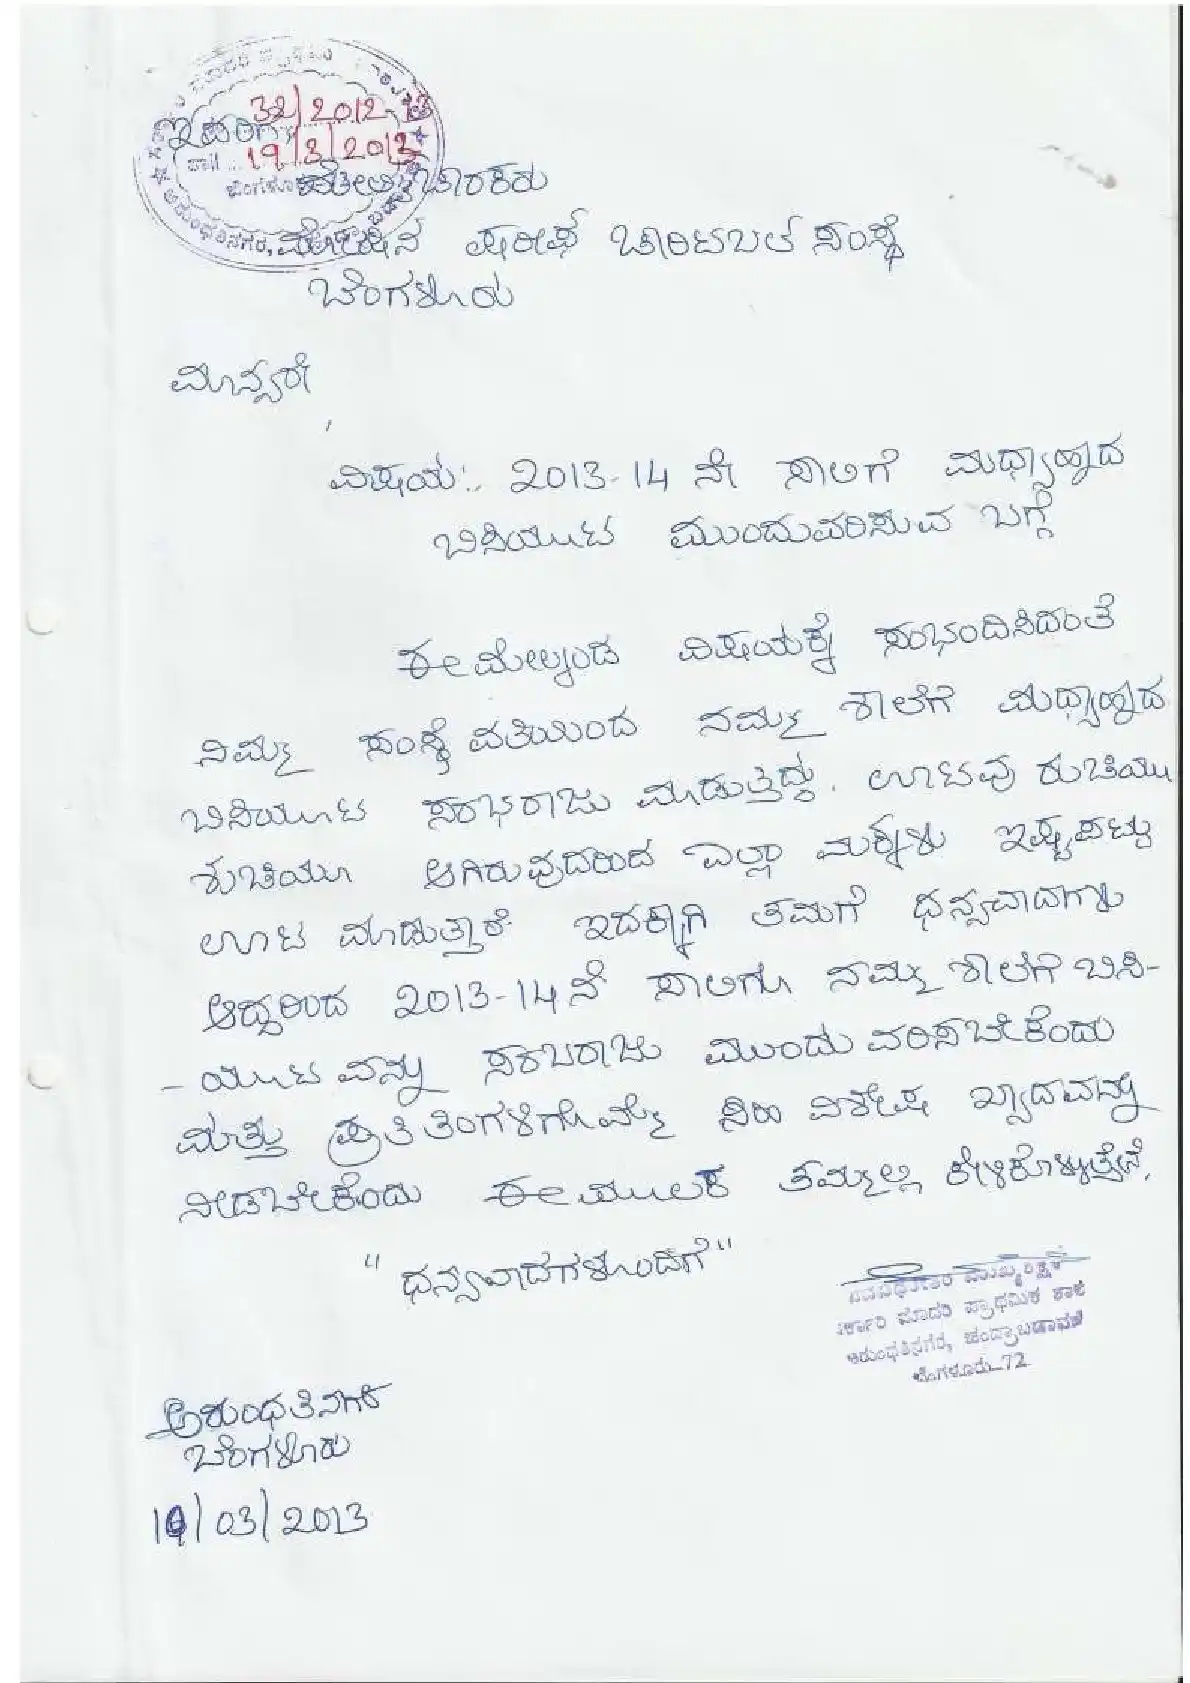 32/2012-13
ಇವರಿಗೆ
19/3/2013
ಬೆಂಗಳೂ
ಅರುಂಧತಿನಗರ,
ಷರೀಫ್ ಚಾರಿಟಬಲ್ ಸಂಸ್ಥೆ
ಬೆಂಗಳೂರು
ಮಾನ್ಯರೇ
,
ವಿಷಯ:. 2013-14 ನೇ ಸಾಲಿಗೆ ಮಧ್ಯಾಹ್ನದ
ಬಿಸಿಯೂಟ ಮುಂದುವರಿಸುವ ಬಗ್ಗೆ
ಈ ಮೇಲ್ಕಂಡ ವಿಷಯಕ್ಕೆ ಸಂಭಂದಿಸಿದಂತೆ
ನಿಮ್ಮ ಸಂಸ್ಥೆ ವತಿಯಿಂದ ನಮ್ಮ ಶಾಲೆಗೆ ಮಧ್ಯಾಹ್ನದ
ಬಿಸಿಯೂಟ ಸರಭರಾಜು ಮಾಡುತ್ತಿದ್ದು. ಊಟವು ರುಚಿಯು
ಶುಚಿಯೂ ಆಗಿರುವುದರಿಂದ ಎಲ್ಲಾ ಮಕ್ಕಳು ಇಷ್ಟಪಟ್ಟು
ಊಟ ಮಾಡುತ್ತಾರೆ ಇದಕ್ಕಾಗಿ ತಮಗೆ ಧನ್ಯವಾದಗಳು
ಆದ್ದರಿಂದ 2013-14ನೆ ಸಾಲಿಗೂ ನಮ್ಮ ಶಾಲೆಗೆ ಬಿಸಿ-
-ಯೂಟವನ್ನು ಸರಬರಾಜು ಮುಂದುವರಿಸಬೇಕೆಂದು
ಮತ್ತು ಪ್ರತಿತಿಂಗಳಿಗೊಮ್ಮೆ ಸಿಹಿ ವಿಶೇಷ ಖ್ಯಾದವನ್ನು
ನೀಡಬೇಕೆಂದು ಈ ಮೂಲಕ ತಮ್ಮಲ್ಲಿ ಕೇಳಿಕೊಳ್ಳುತ್ತೇನೆ.
"ಧನ್ಯವಾದಗಳೊಂದಿಗೆ"
ಮುಖ್ಯಶಿಕ್ಷಕಿ
ರ್ಕಾರಿ ಮಾದರಿ ಪ್ರಾಥಮಿಕ ಶಾಲೆ
ಅರುಂಧತಿನಗರ, ಚಂದ್ರಾಬಡಾವಣೆ
ಬೆಂಗಳೂರು-72
ಅರುಂಧತಿನಗರ
ಬೆಂಗಳೂರು
/03/2013